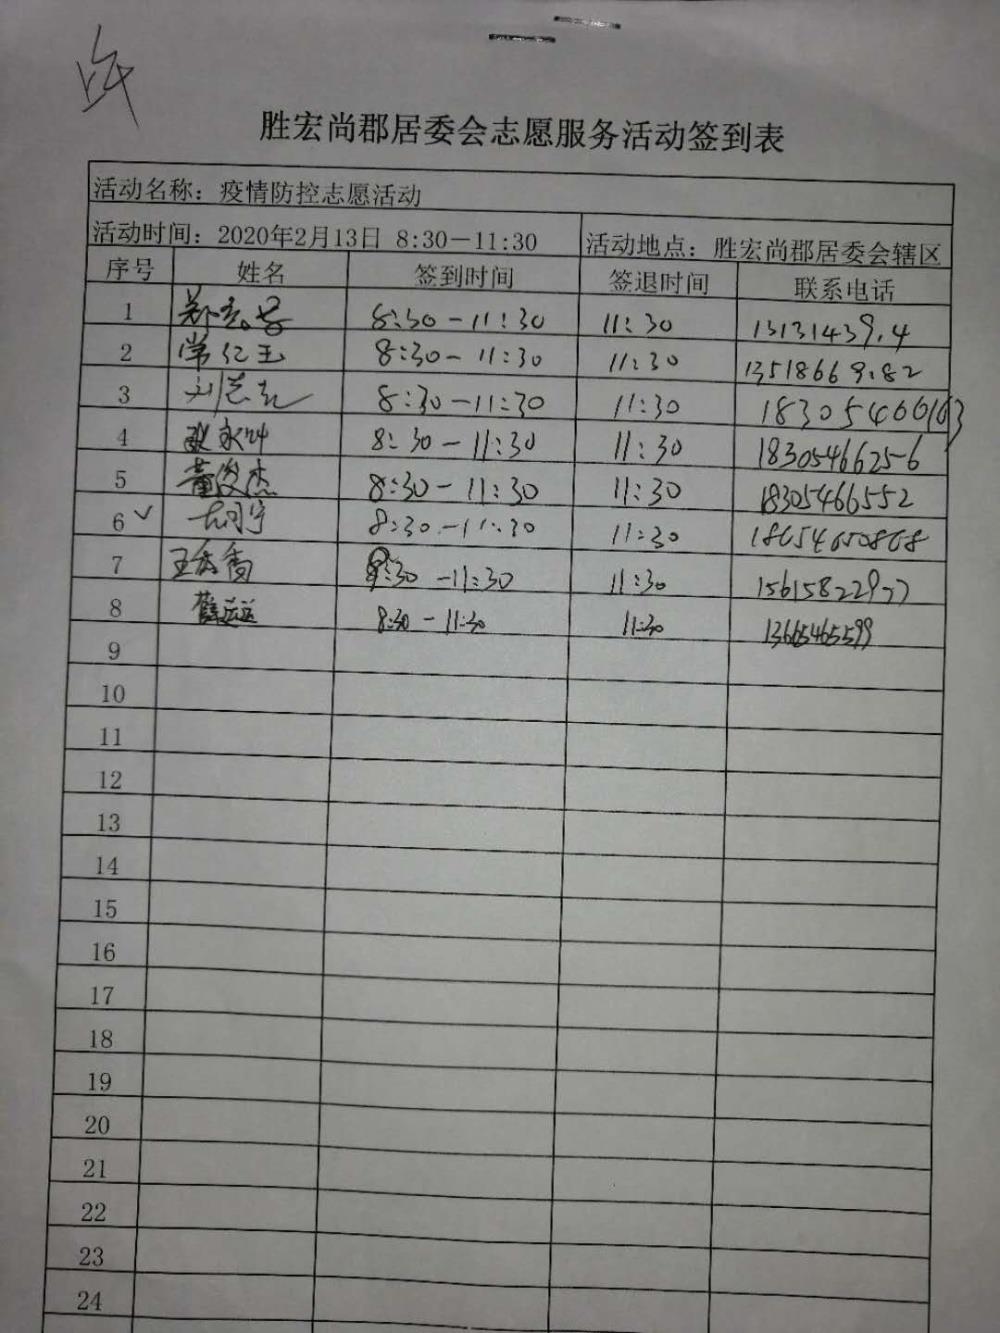 胜宏尚郡居委会志愿服务活动签到表
活动名称：疫情防控志愿活动
活动时间：2020年2月13日 8:30－11:30 活动地点：胜宏尚郡居委会辖区
序号 姓名 签到时间 签退时间 联系电话
1 8:30-11:30 11:30
2 常仁玉 8:30-11:30 11:30
3 刘志元 8:30-11:30 11:30
4 8:30-11:30 11:30 18305466256
5 董俊杰 8:30-11:30 11:30 18305466552
6 ✓ 8:30-11:30 11:30 18654650868
7 王秀香 8:30-11:30 11:30 15615822977
8 薛运运 8:30-11:30 11:30 13665465599
9
10
11
12
13
14
15
16
17
18
19
20
21
22
23
24